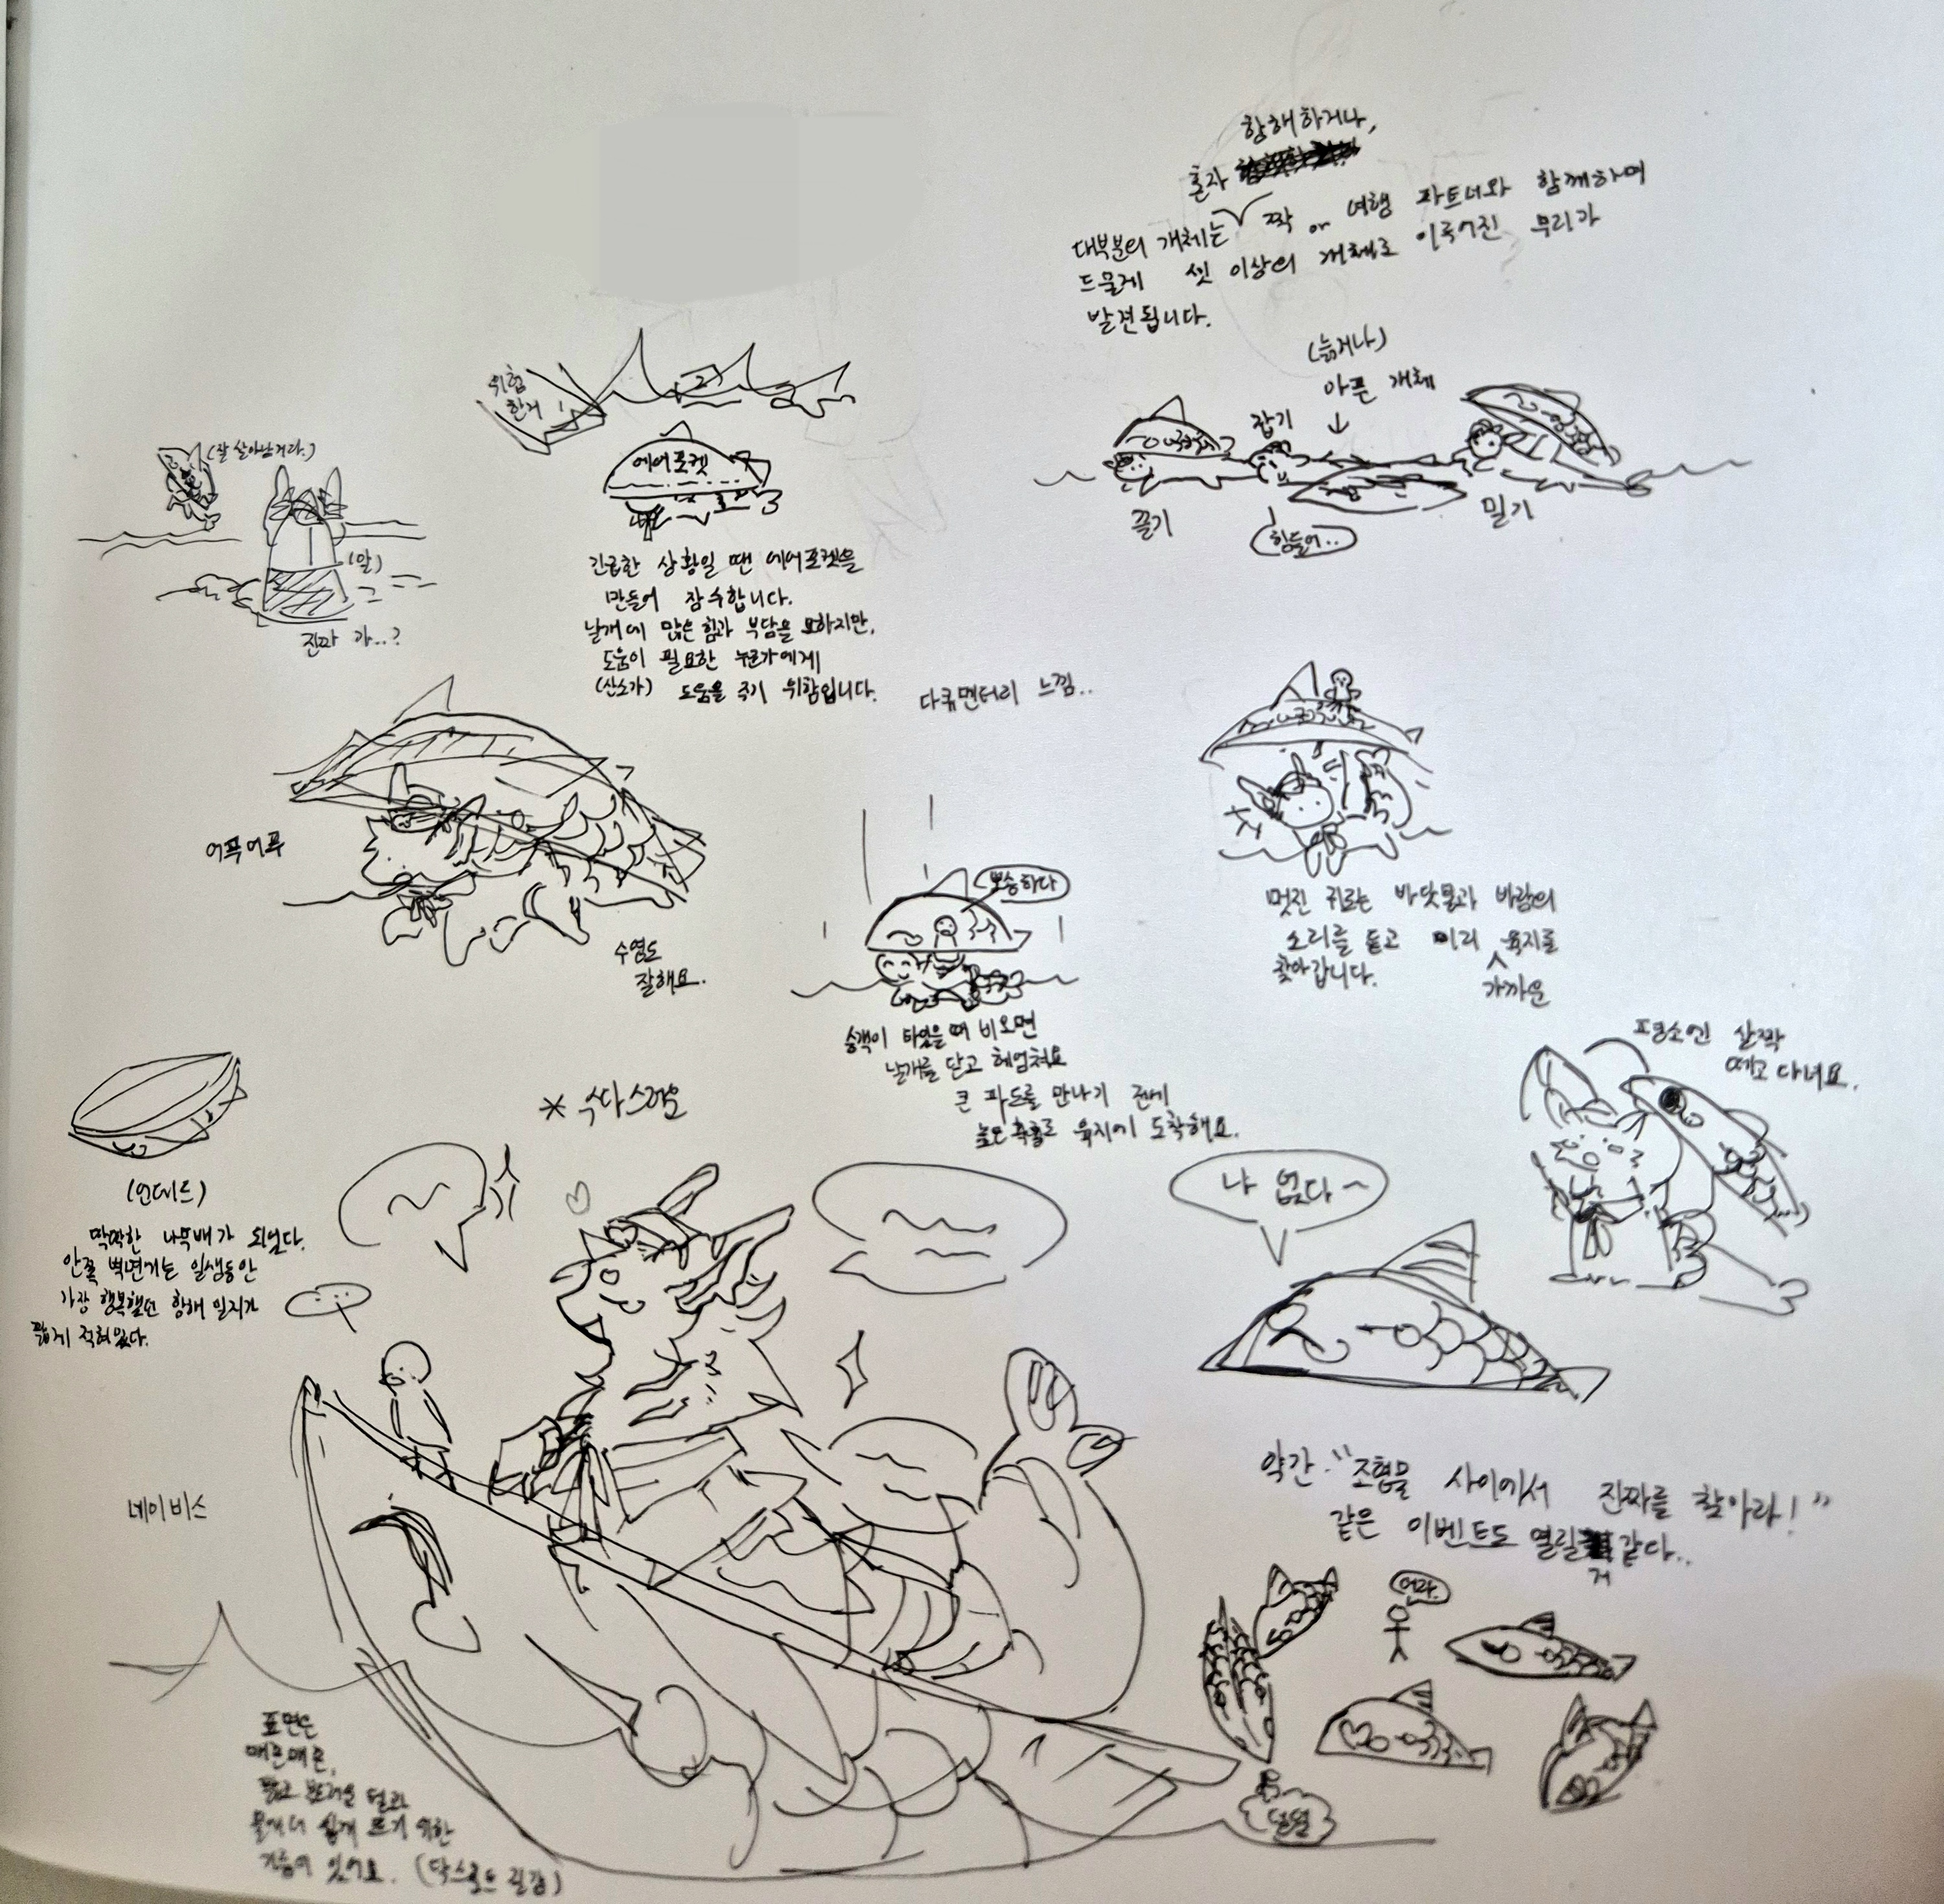 항해하거나,
혼자
대부분의 개체는 짝 or 여행 파트너와 함께하며
드물게 셋 이상의 개체로 이루어진 무리가
발견됩니다.
(늙거나)
아픈 개체
잡기
끌기
밀기
힘들어..
위험
한거
에어포켓
긴급한 상황일 땐 에어포켓을
만들어 잠수합니다.
날개에 많은 힘과 부담을 요하지만,
도움이 필요한 누군가에게
(산소가) 도움을 주기 위함입니다.
다큐멘터리 느낌..
(잘 살아남거라.)
(말)
진짜 가..?
어푸어푸
수영도
잘해요.
뽀송하다
승객이 타있을 때 비오면
날개를 닫고 헤엄쳐요
큰 파도를 만나기 전에
높은 확률로 육지에 도착해요.
멋진 귀로는 바닷물과 바람의
소리를 듣고 미리 육지를
찾아갑니다.
가까운
평소엔 살짝
떼고 다녀요.
(언데드)
딱딱한 나무배가 되었다.
안쪽 벽면에는 일생동안
가장 행복했던 항해 일지가
짧게 적혀있다.
* 수다스러운
나 없다~
약간 "조형물 사이에서 진짜를 찾아라!"
같은 이벤트도 열릴 같다..
거
네이비스
표면은
매끈매끈,
짧고 부드러운 털과
물에 더 쉽게 뜨기 위한
기름이 있어요.
덜덜